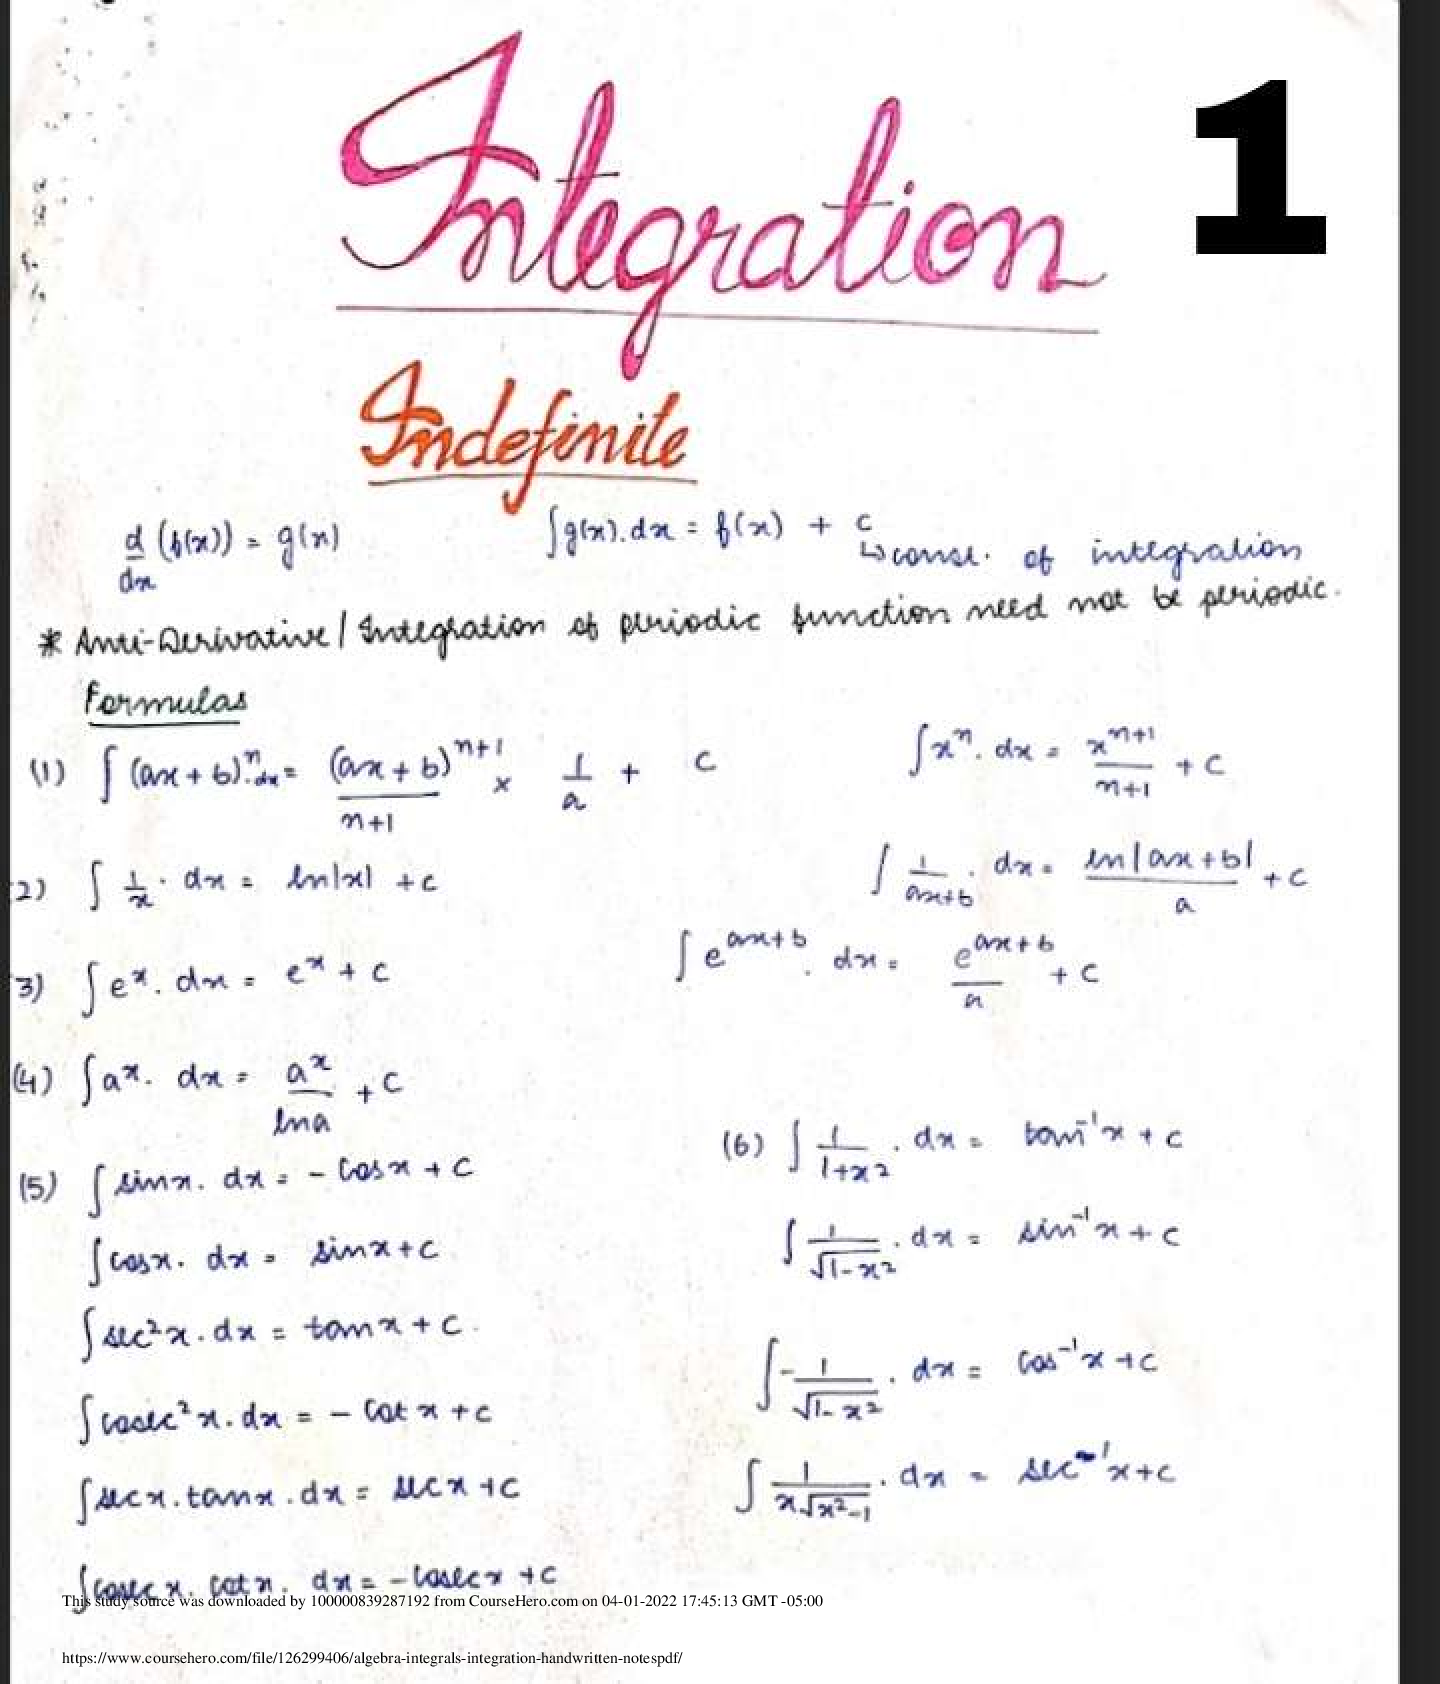 Integration
1
Indefinite
d/dx (f(x)) = g(x)    ∫g(x).dx = f(x) + c
↳ const. of integration
* Anti-Derivative/Integration of periodic function need not be periodic.
Formulas
(1) ∫(ax+b)ⁿ.dx = (ax+b)ⁿ⁺¹/n+1 × 1/a + c    ∫xⁿ.dx = xⁿ⁺¹/n+1 + c
2) ∫1/x . dx = ln|x| + c    ∫1/ax+b . dx = ln|ax+b|/a + c
3) ∫eˣ. dx = eˣ + c    ∫e^(ax+b) . dx = e^(ax+b)/a + c
(4) ∫aˣ. dx = aˣ/lna + c
(5) ∫sinx. dx = - cosx + c
∫cosx. dx = sinx + c
∫sec²x.dx = tanx + c.
∫cosec²x.dx = - cotx + c
∫secx.tanx.dx = secx + c
∫cosecx. cotx. dx = -cosecx + c
(6) ∫1/1+x² . dx = tan⁻¹x + c
∫1/√1-x² . dx = sin⁻¹x + c
∫-1/√1-x² . dx = cos⁻¹x + c
∫1/x√x²-1 . dx = sec⁻¹x + c
This study source was downloaded by 100000839287192 from CourseHero.com on 04-01-2022 17:45:13 GMT -05:00
https://www.coursehero.com/file/126299406/algebra-integrals-integration-handwritten-notespdf/